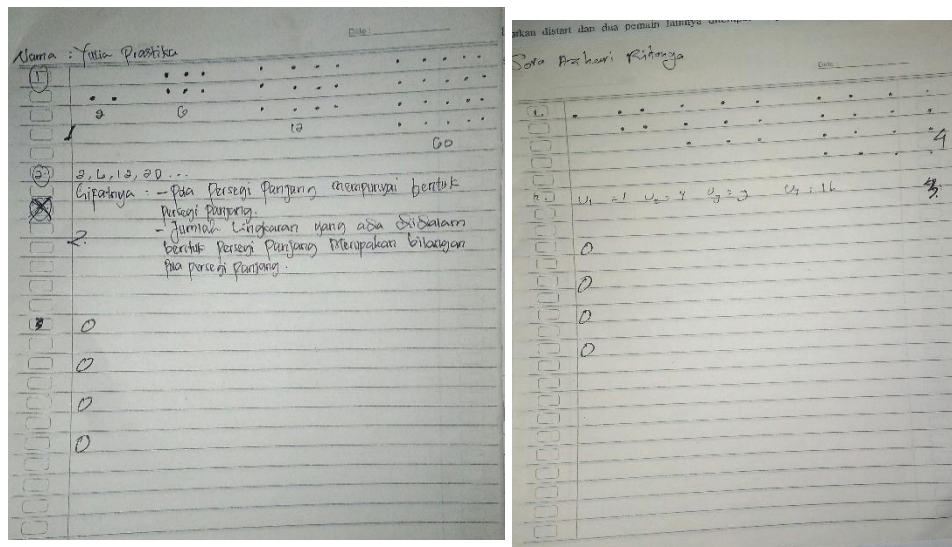 Date :
Nama : Yusia Prastika
1
2
6
12
60
2 2, 6, 12, 20 ...
Sifatnya : - Pola Persegi Panjang mempunyai bentuk
persegi panjang.
- Jumlah Lingkaran yang ada didalam
bentuk persegi panjang merupakan bilangan
pola persegi panjang.
2
3 0
0
0
0
arkan distart dan dua pemain lainnya
Sora Azhari Ritonga
Date :
1.
4
2. U₁ = 1 U₂ = 4 U₃ = 9 U₄ = 16
3
0
0
0
0